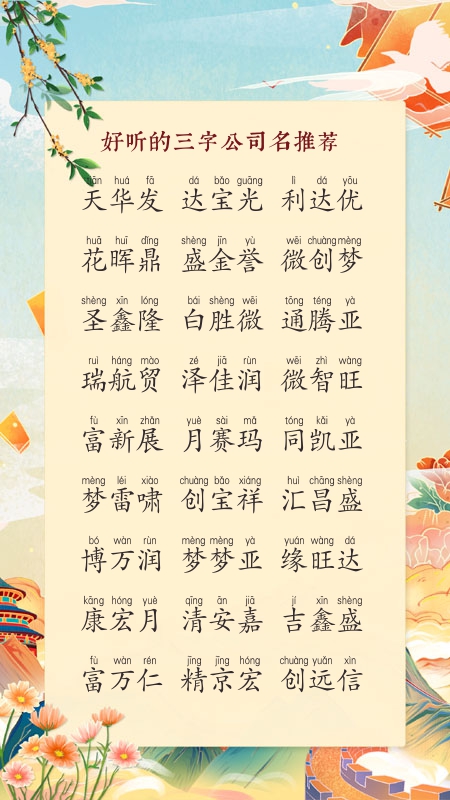 好听的三字公司名推荐
tiān huá fā dá bǎo guāng lì dá yōu
天华发 达宝光 利达优
huā huī dǐng shèng jīn yù wēi chuàng mèng
花晖鼎 盛金誉 微创梦
shèng xīn lóng bái shèng wēi tōng téng yà
圣鑫隆 白胜微 通腾亚
ruì háng mào zé jiā rùn wēi zhì wàng
瑞航贸 泽佳润 微智旺
fù xīn zhǎn yuè sài mǎ tóng kǎi yà
富新展 月赛玛 同凯亚
mèng léi xiào chuàng bǎo xiáng huì chāng shèng
梦雷啸 创宝祥 汇昌盛
bó wàn rùn mèng mèng yà yuán wàng dá
博万润 梦梦亚 缘旺达
kāng hóng yuè qīng ān jiā jí xīn shèng
康宏月 清安嘉 吉鑫盛
fù wàn rén jīng jīng hóng chuàng yuǎn xìn
富万仁 精京宏 创远信